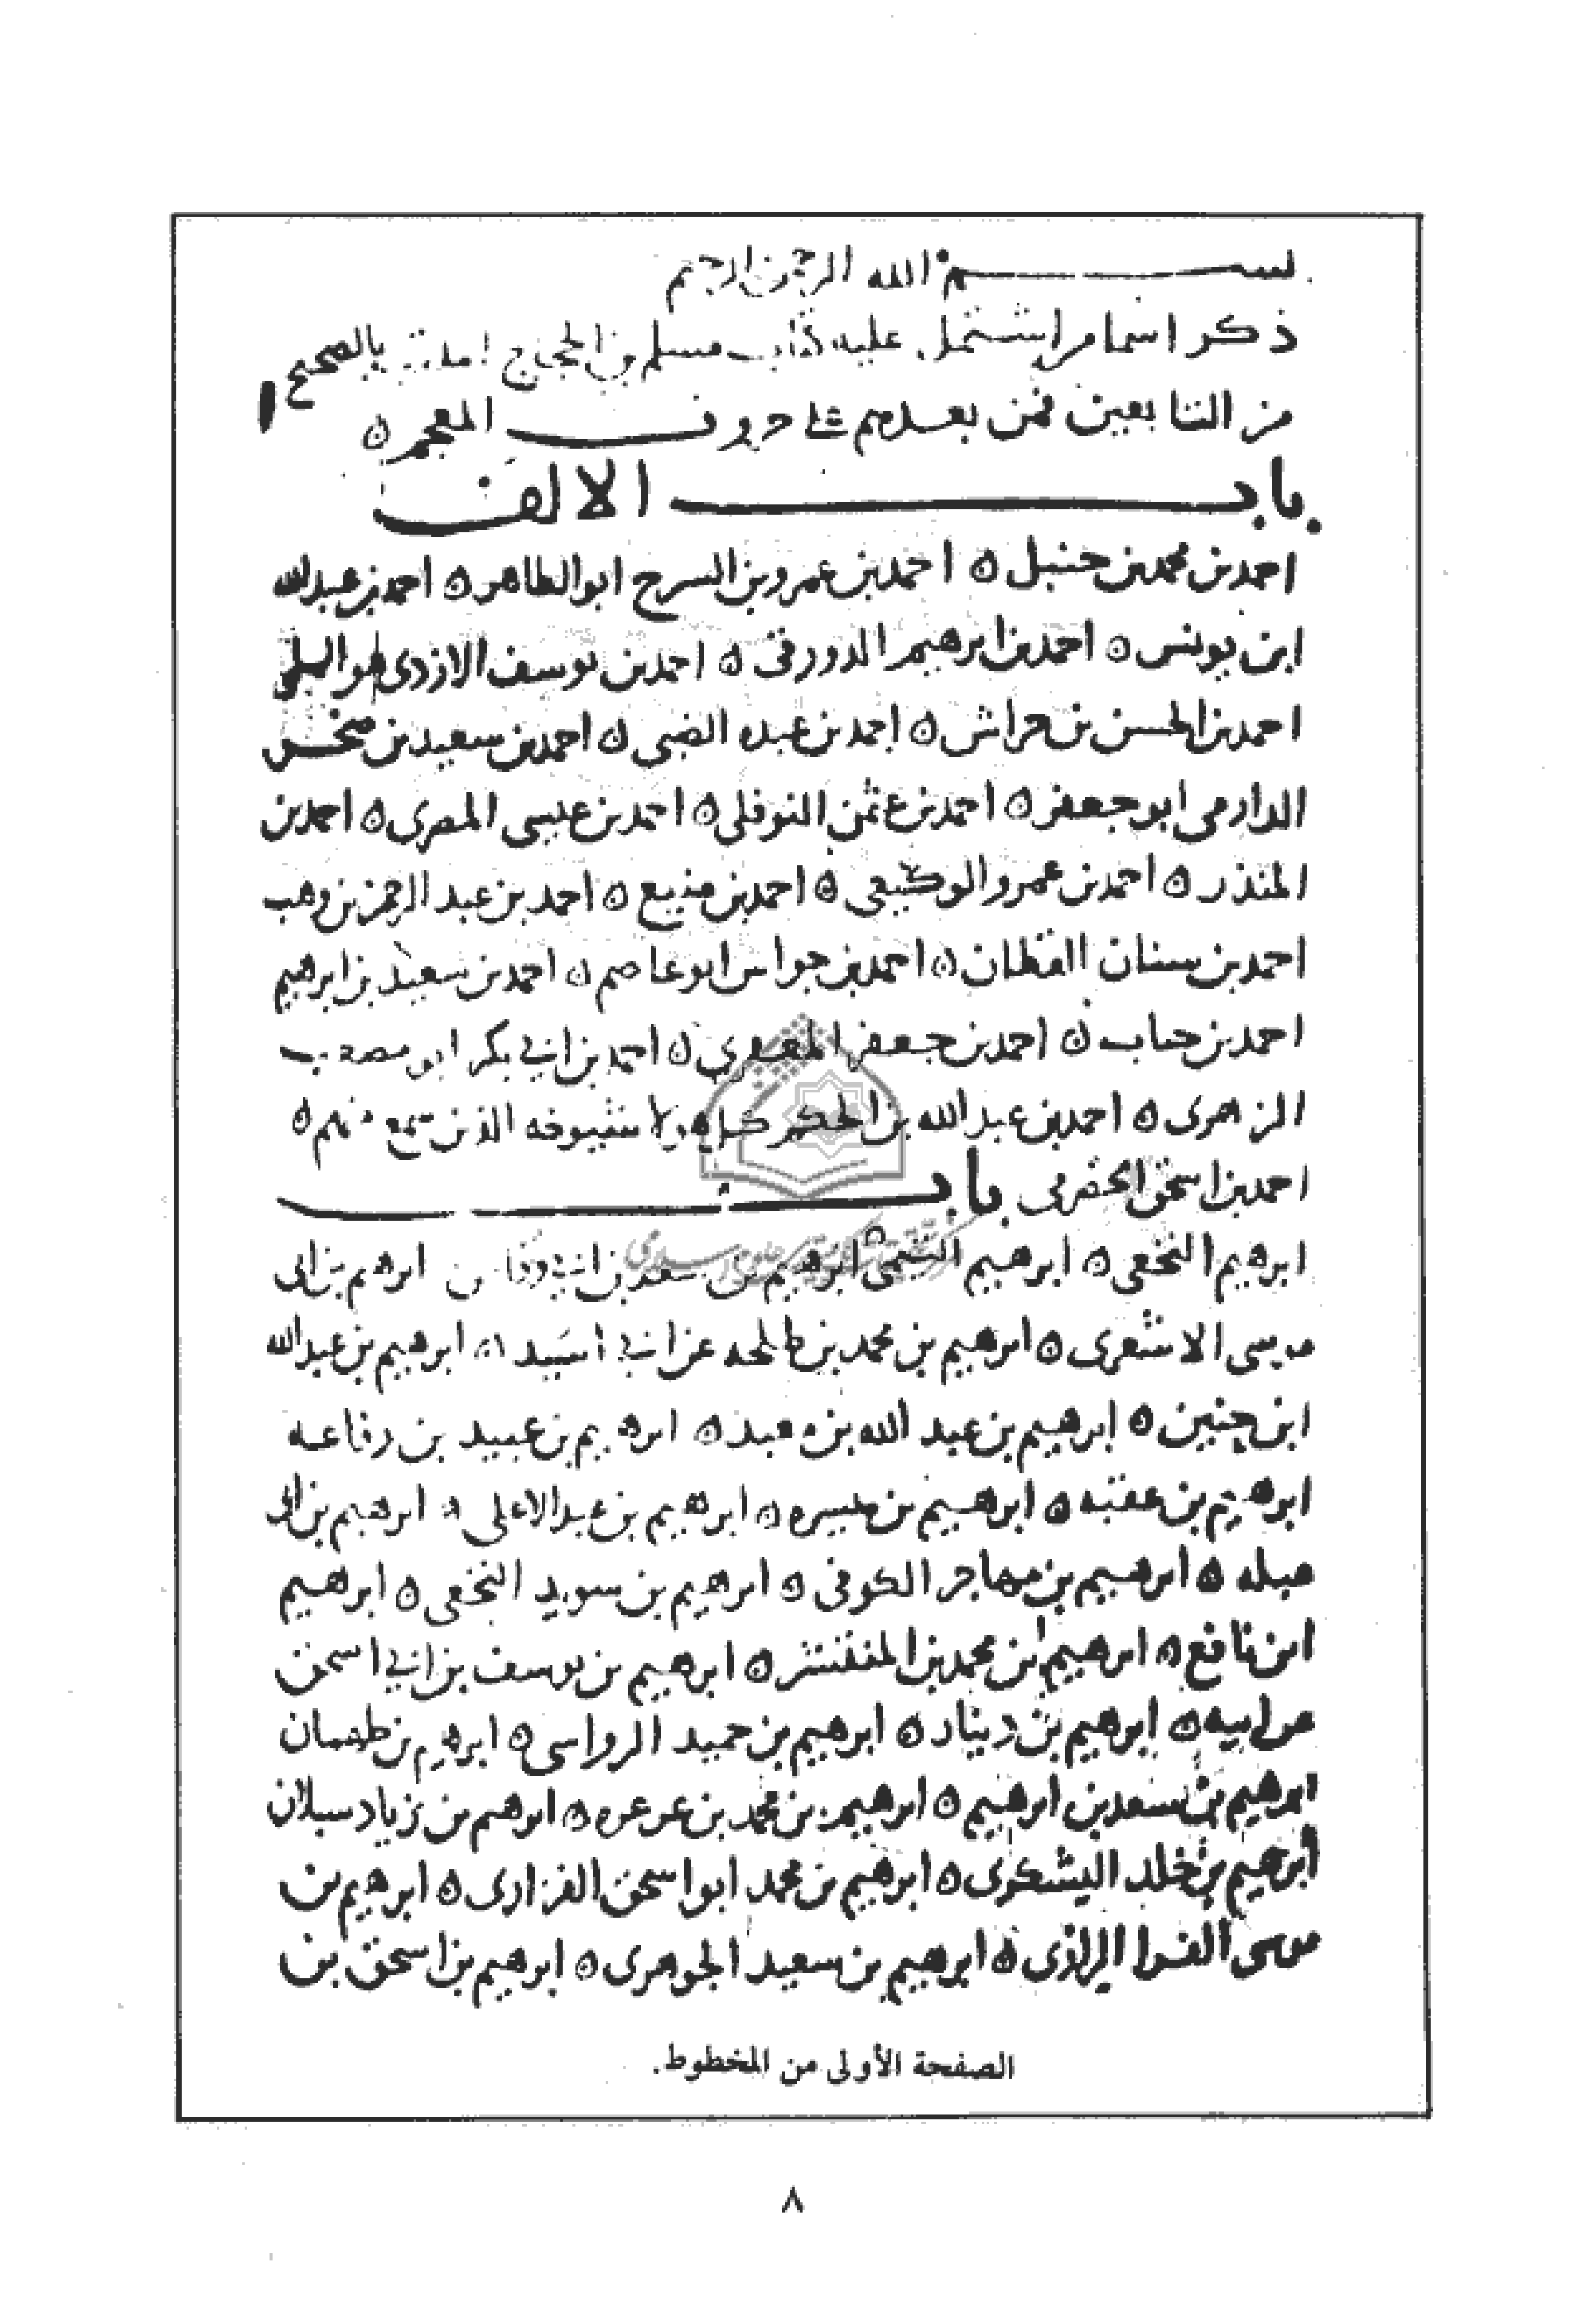 بسم الله الرحمن الرحيم
ذكر اسما من اشتمل عليه كتاب مسلم بن الحجاج بالصحيح
من التابعين فمن بعدهم على حروف المعجم ه
باب الالف
احمد بن محمد بن حنبل ه احمد بن عمرو بن السرح ابو الطاهر ه احمد بن عبد الله
ابن يونس ه احمد بن ابرهيم الدورقى ه احمد بن يوسف الازدى هو السلمي
احمد بن الحسن بن خراش ه احمد بن عبده الضبى ه احمد بن سعيد بن صخر
الدارمى ابو جعفر ه احمد بن عثمن النوفلى ه احمد بن عيسى المصرى ه احمد بن
المنذر ه احمد بن عمرو الوكيعى ه احمد بن منيع ه احمد بن عبد الرحمن بن وهب
احمد بن سنان القطان ه احمد بن جواس ابو عاصم ه احمد بن سعيد بن ابرهيم
احمد بن جناب ه احمد بن جعفر المعقري ه احمد بن ابي بكر ابو مصعب
الزهرى ه احمد بن عبد الله بن الحكم كل هولا شيوخه الذين سمع منهم ه
احمد بن اسحق الحضرمى باب
ابرهيم النخعى ه ابرهيم التيمى ه ابرهيم بن سعد بن ابي وقاص ابرهيم بن ابى
موسى الاشعرى ه ابرهيم بن محمد بن طلحه عن ابي اسيد ه ابرهيم بن عبد الله
ابن حنين ه ابرهيم بن عبد الله بن معبد ه ابرهيم بن عبيد بن رفاعه
ابرهيم بن عقبه ه ابرهيم بن ميسره ه ابرهيم بن عبد الاعلى ه ابرهيم بن ابى
عبله ه ابرهيم بن مهاجر الكوفى ه ابرهيم بن سويد النخعى ه ابرهيم
ابن نافع ه ابرهيم بن محمد بن المنتشر ه ابرهيم بن يوسف بن ابي اسحق
عن ابيه ه ابرهيم بن دينار ه ابرهيم بن حميد الرواسى ه ابرهيم بن طهمان
ابرهيم بن سعد بن ابرهيم ه ابرهيم بن محمد بن عرعره ه ابرهيم بن زياد سبلان
ابرهيم بن خلد اليشكرى ه ابرهيم بن محمد ابو اسحق الفزارى ه ابرهيم بن
موسى الفرا الرازى ه ابرهيم بن سعيد الجوهرى ه ابرهيم بن اسحق بن
الصفحة الأولى من المخطوط.
٨